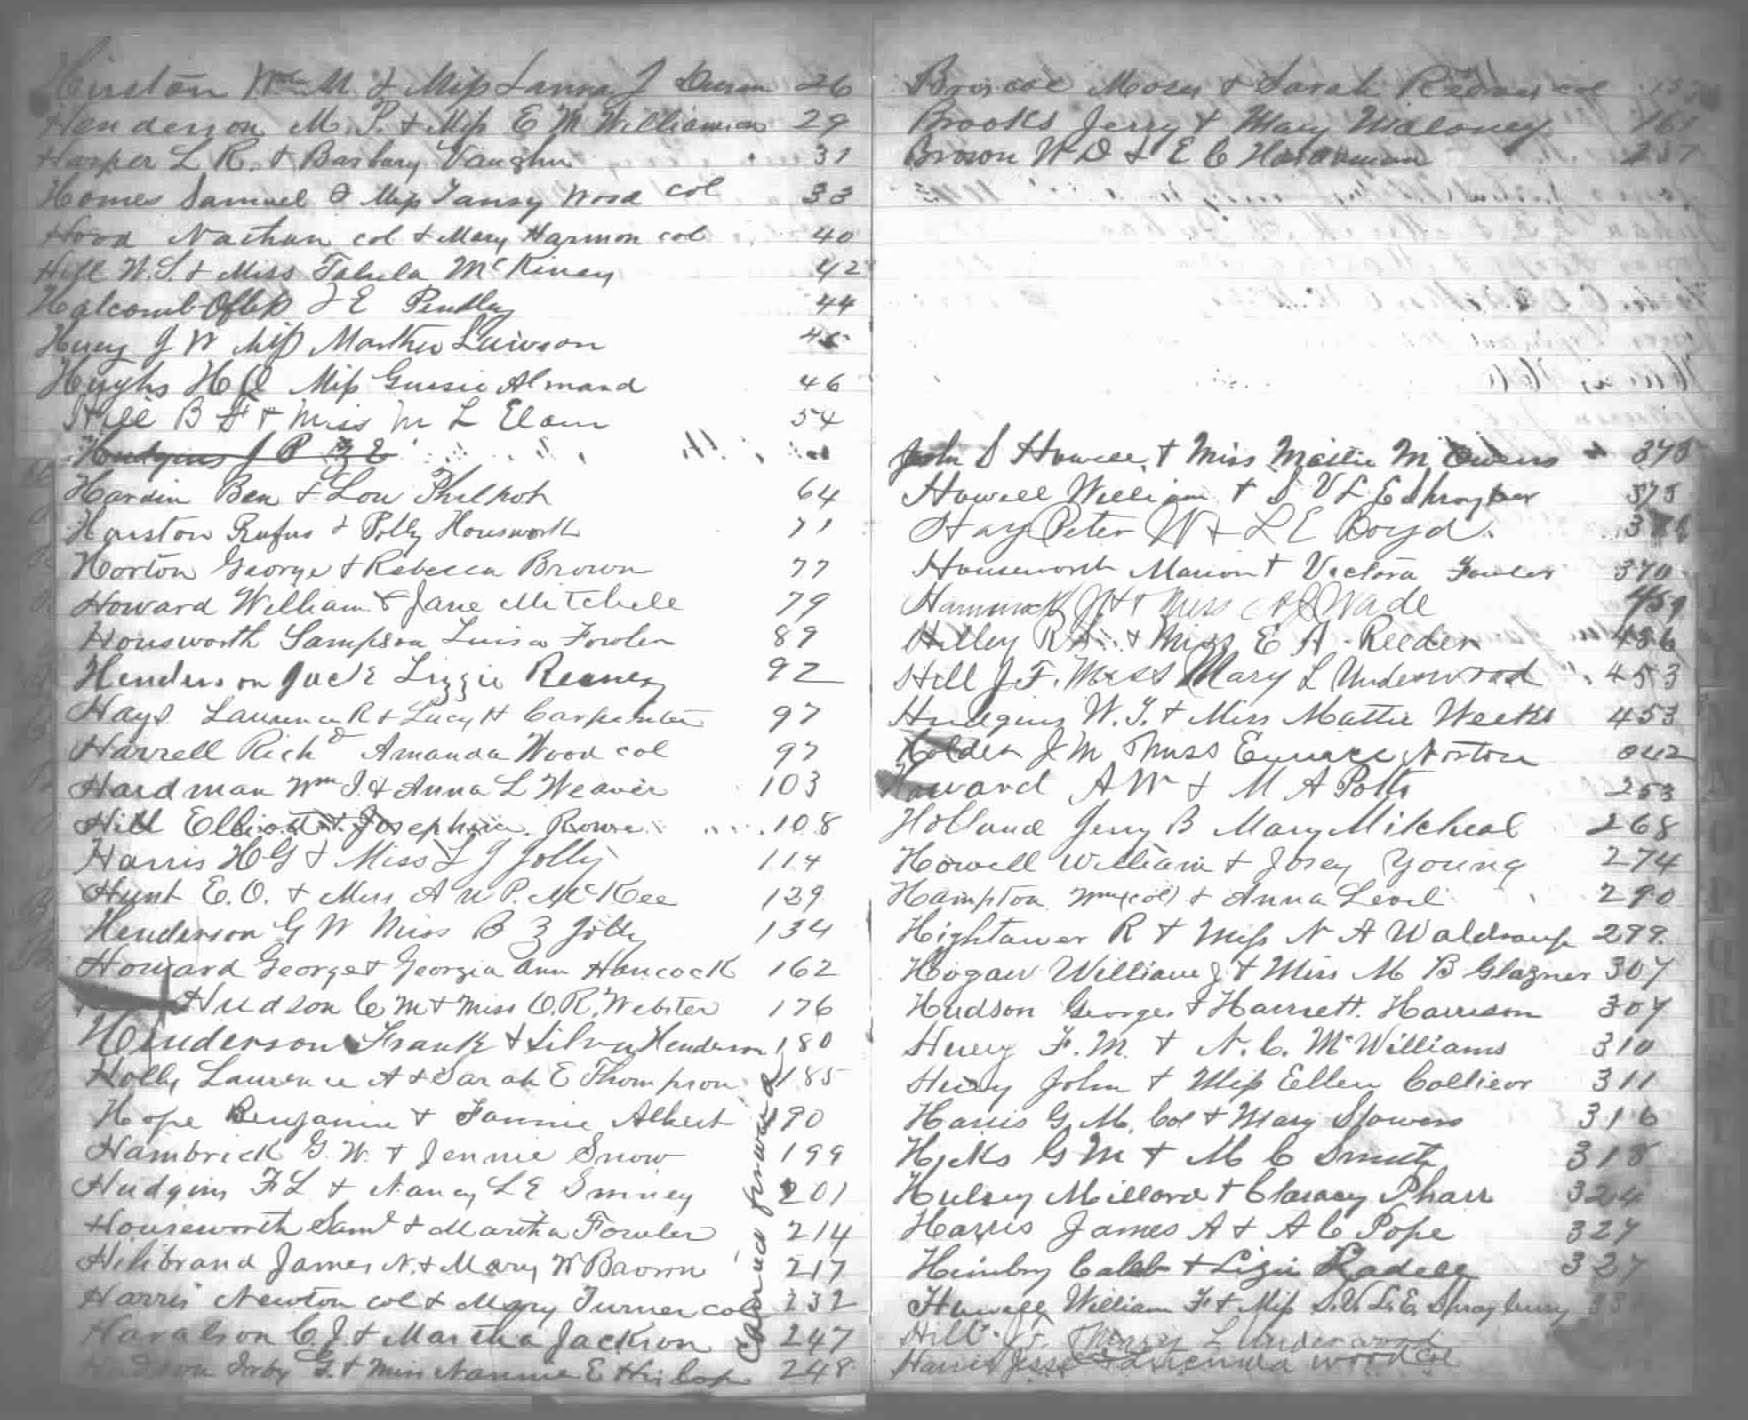 Hinston Wm M. & Miss Lanna J Duran 26
Henderson M. P. & Miss E M Williamson 29
Harper L R. & Barbary Vaughn 31
Homes Samuel & Miss Tansy Wood col 33
Hood Nathan col & Mary Harmon col 40
Hill W. S. & Miss Tabula McKiney 42
Halcomb & E Pendley 44
Huey J W Miss Martha Lawson 45
Hughs H Miss Gussie Almand 46
Hill B F & Miss M L Elam 54
Hudgins J P
Hardin Ben & Lou Philpot 64
Hairston Rufus & Polly Housworth 71
Horton George & Rebecca Brown 77
Howard William & Jane Mitchell 79
Housworth Sampson Luisa Fowler 89
Henderson Jack Lizzie Reaney 92
Hays Laurence R & Lucy H Carpenter 97
Harrell Richd Amanda Wood col 97
Hardman Wm J. & Anna L Weaver 103
Hill Elliott & Josephine Rowe 108
Harris H G & Miss L J Jolly 114
Hunt E. O. & Miss A U P. McKee 129
Henderson G W Miss B Z Jolly 134
Howard George & Georgia Ann Hancock 162
Hudson C M & Miss O. R. Webster 176
Henderson Frank & Silva Henderson 180
Holly Laurence A & Sarah E Thompson 185
Hope Benjamin & Fannie Albert 190
Hambrick G. W. & Jennie Snow 199
Hudgins F L & Nancy L E Smiley 201
Houseworth Saml & Martha Fowler 214
Hilibrand James N. & Mary W Brown 217
Harris Newton col & Mary Turner col 232
Haralson C. J. & Martha Jackson 247
Hudson Irby G. & Miss Nannie E Hislop 248
Carried forward
Briscoe Moses & Sarah col
Brooks Jerry & Mary Maloney 161
Brown W D & E C Hardman 237
John S Howell & Miss Mattie M Owens 375
Howell William & S V L E Shrayber 375
Hay Peter W & L E Boyd
Houseworth Marion & Victora Fowler 370
Hammock J H & Miss Wade 459
Hilley R A. & Miss E A. Reeder 456
Hill J. F. Miss Mary L Underwood 453
Hudgins W. T. & Miss Mattie Weeks 453
Holder J M Miss Norton
Howard A W & M A Potts 253
Holland Jerry B Mary Mitcheal 268
Howell William & Josey Young 274
Hampton Wm (col) & Anna Levil 290
Hightower R & Miss N A Waldraup 299
Hogan William J & Miss M B Glazner 307
Hudson George & Harriett Harrison 307
Huey F. M. & N. C. McWilliams 310
Huey John & Miss Ellen Collier 311
Harris G M. Col & Mary Stowers 316
Hicks G M & M C Smith 318
Hulsey Millard & Claracy Pharr 324
Harris James A & A C Pope 327
Heimby Caleb & Lizie Ladell 327
Howell William F & Miss S. V. L. E. Spragberry
Hill J. F. Mary L Underwood
Harris Jesse & Lucinda Wood col